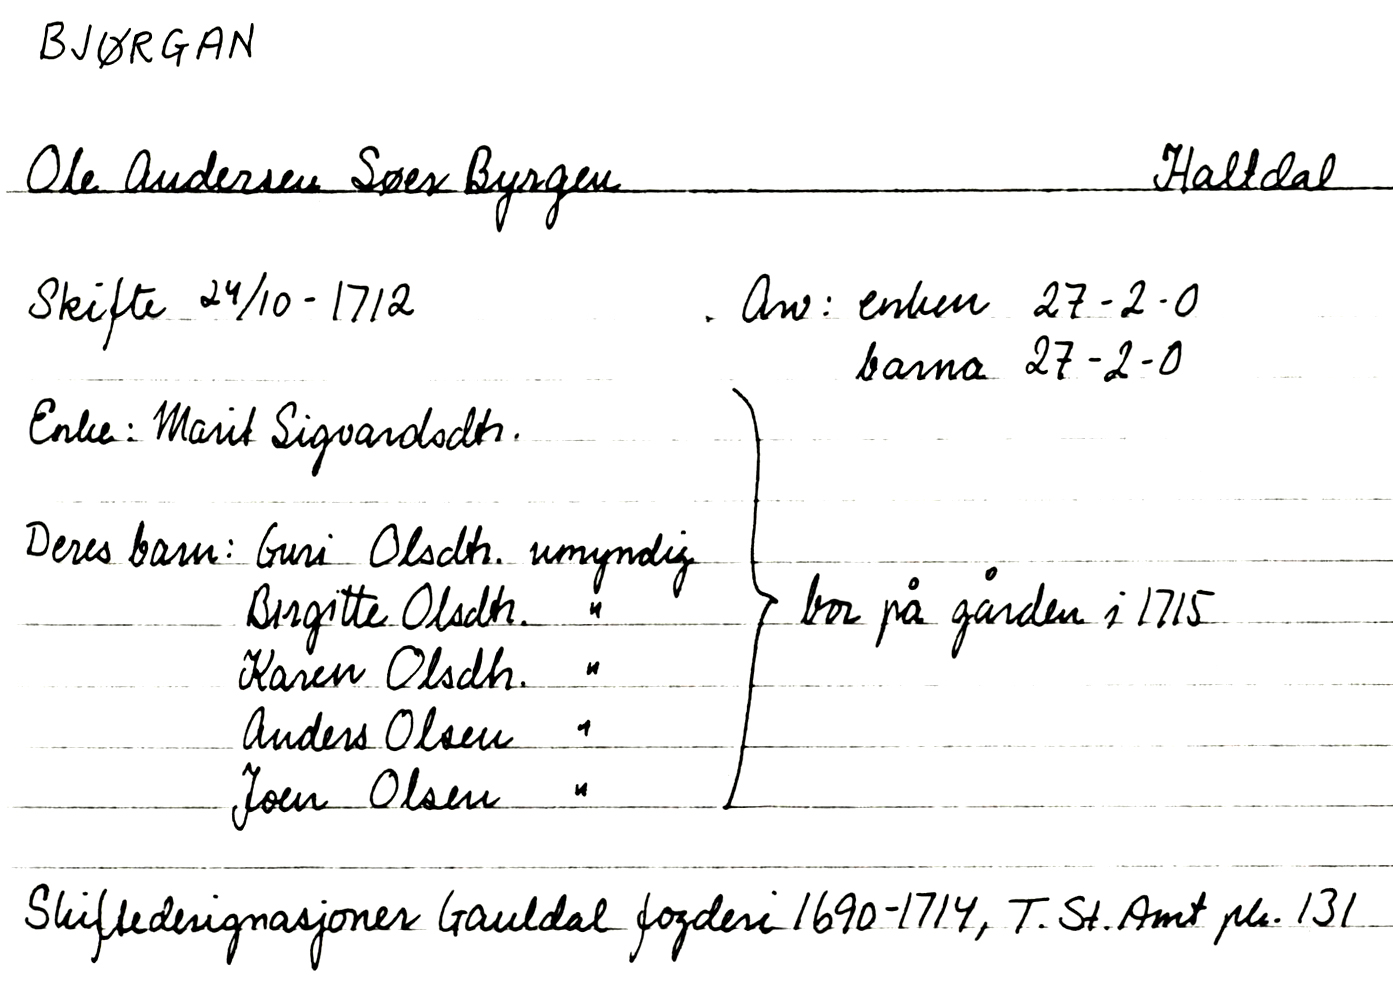 BJØRGAN
Ole Andersen Søer Byrgen Haltdal
Skifte 24/10-1712 . Arv: enken 27-2-0
barna 27-2-0
Enke: Marit Sigvardsdtr.
Deres barn: Guri Olsdtr. umyndig
Birgitte Olsdtr. "
Karen Olsdtr. "
bor på gården i 1715
Anders Olsen "
Joen Olsen "
Skiftedesignasjoner Gauldal fogderi 1690-1714, T. St. Amt pk. 131